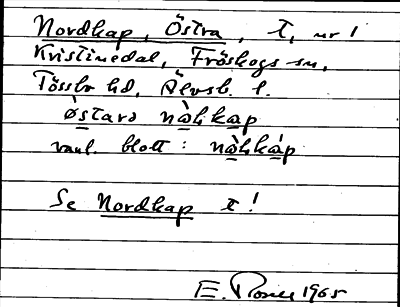 Nordkap, Östra, t, nr 1
Kristinedal, Fröskogs sn,
Tössbo hd, Älvsb. l.
östars nàkkap
vanl. blott : nàkkáp
Se Nordkap t!
E. Rosell 1965